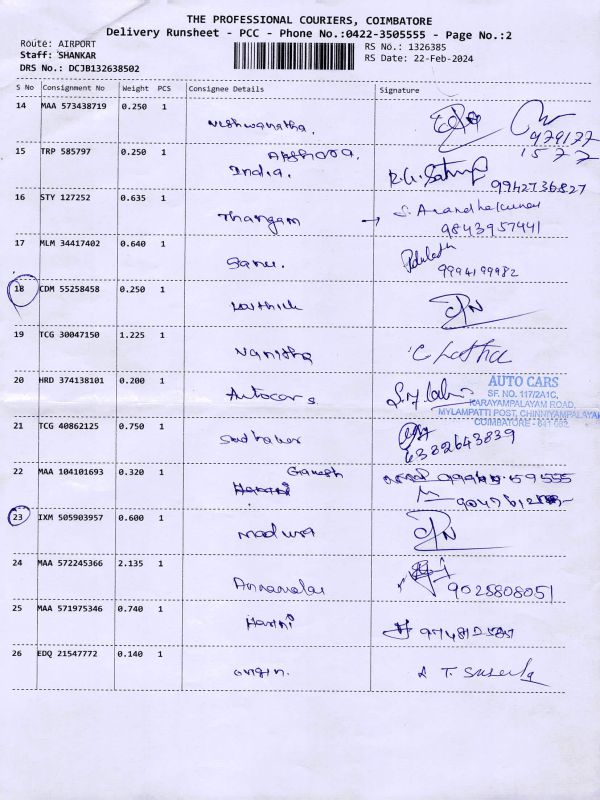 THE PROFESSIONAL COURIERS, COIMBATORE
Delivery Runsheet - PCC - Phone No.:0422-3505555 - Page No.:2
Route: AIRPORT
Staff: SHANKAR
DRS No.: DCJB132638502
RS No.: 1326385
RS Date: 22-Feb-2024
S No Consignment No Weight PCS Consignee Details Signature
14 MAA 573438719 0.250 1
Vishwanatha.
979177
1577
15 TRP 585797 0.250 1
Akshara.
India.
9942736827
16 STY 127252 0.635 1
Thangam → S. Anandhakumar
9843957441
17 MLM 34417402 0.640 1
9994199982
18 CDM 55258458 0.250 1
Karthick
19 TCG 30047150 1.225 1
C. Latha
20 HRD 374138101 0.200 1
Autocars
AUTO CARS
SF. NO. 117/2A1C,
KARAYAMPALAYAM ROAD,
MYLAMPATTI POST, CHINNIYAMPALAYAM
COIMBATORE - 641 062.
21 TCG 40862125 0.750 1
Sudhakar
6382643839
22 MAA 104101693 0.320 1
Ganesh
Harini
23 IXM 505903957 0.600 1
Madura
24 MAA 572245366 2.135 1
Annamalai
9025808051
25 MAA 571975346 0.740 1
Harini
26 EDQ 21547772 0.140 1
origin.
T. Suseela